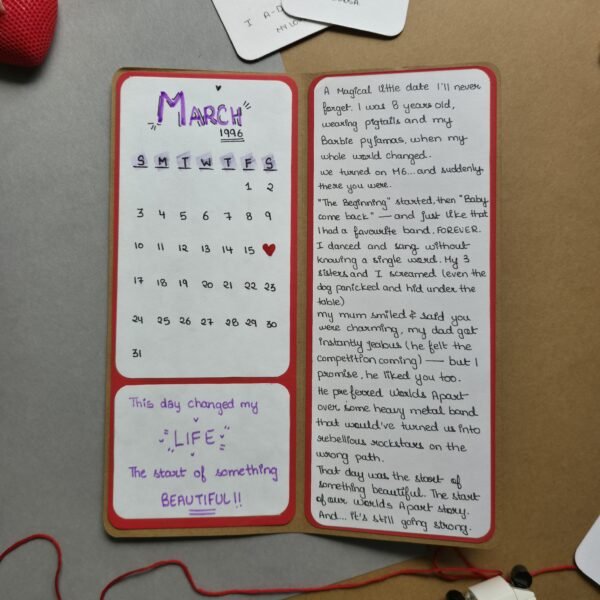 I A-D
MY LO
MARCH
1996
S M T W T F S
1 2
3 4 5 6 7 8 9
10 11 12 13 14 15 ♥
17 18 19 20 21 22 23
24 25 26 27 28 29 30
31
This day changed my
LIFE
The start of something
BEAUTIFUL!!
A Magical little date I'll never
forget. I was 8 years old,
wearing pigtails and my
Barbie pyjamas, when my
whole world changed..
we turned on M6...and suddenly
there you were.
"The Beginning" started, then "Baby
come back" — and just like that
I had a favourite band. FOREVER.
I danced and sang without
knowing a single word. My 3
sisters and I screamed (even the
dog panicked and hid under the
table)
my mum smiled & said you
were charming, my dad got
instantly jealous (he felt the
competition coming) — but I
promise, he liked you too.
He preferred Worlds Apart
over some heavy metal band
that would've turned us into
rebellious rockstars on the
wrong path.
That day was the start of
something beautiful. The start
of our worlds Apart story.
And... it's still going strong.